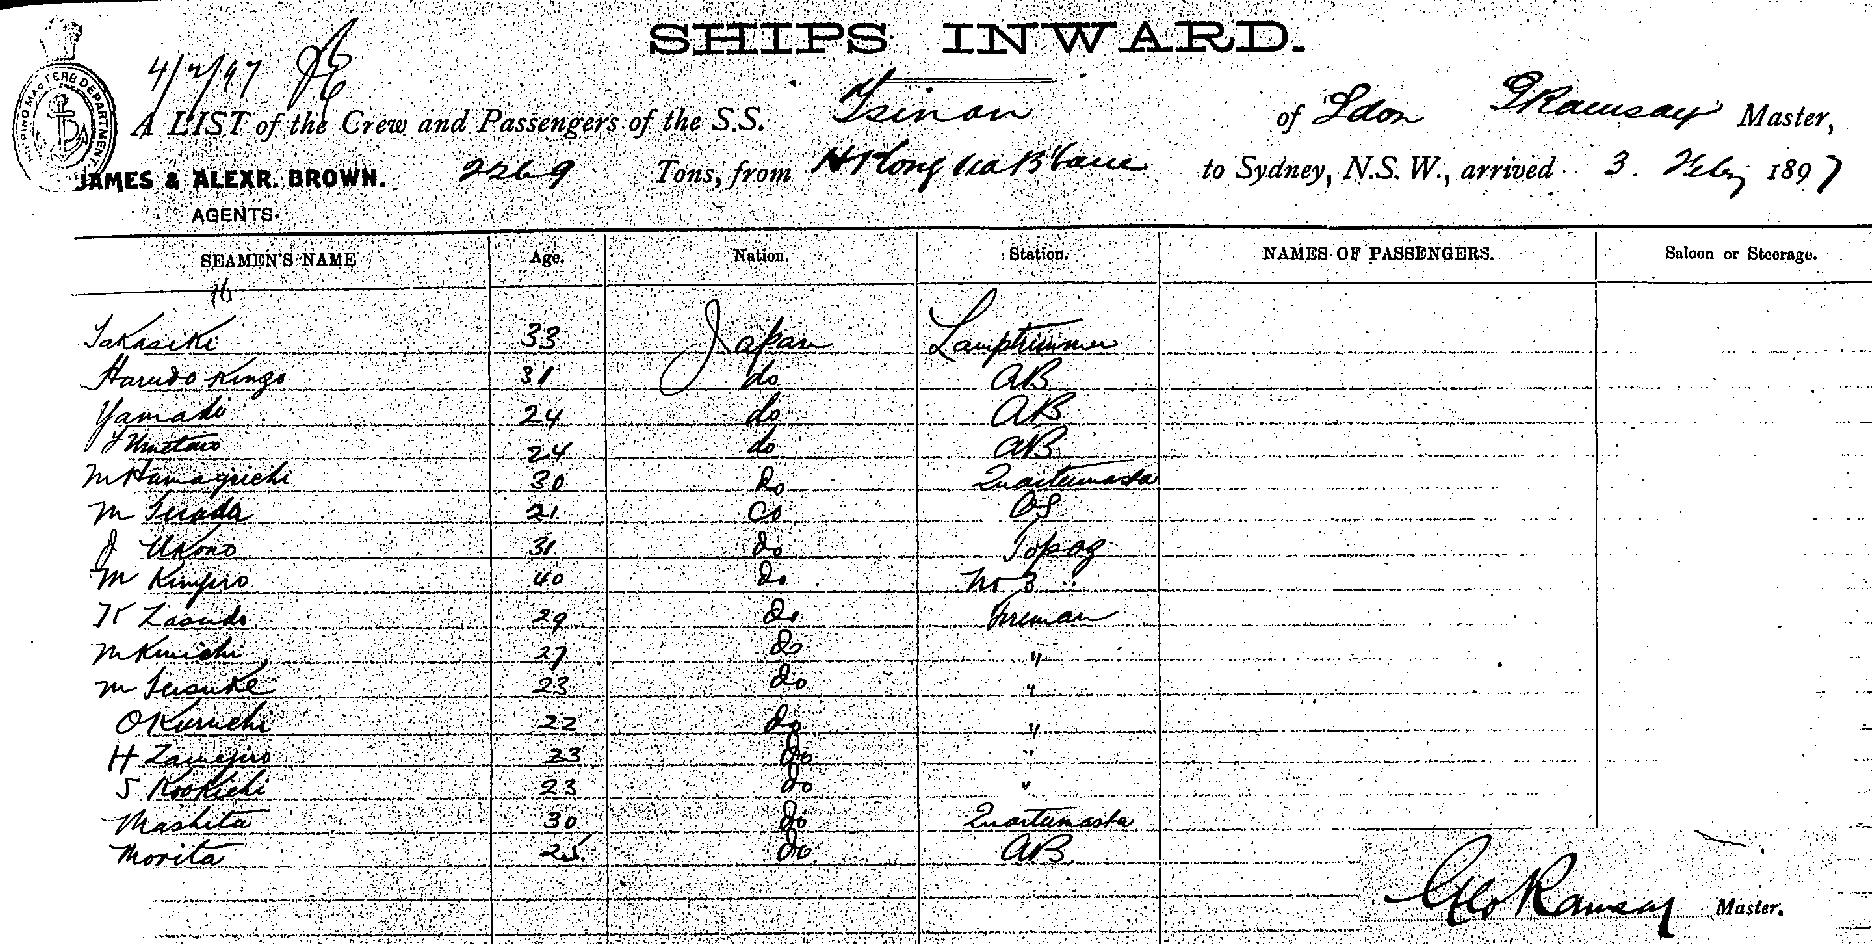 SHIPS INWARD.
SHIPPING MASTERS DEPARTMENT.
4/2/97
A LIST of the Crew and Passengers of the S.S. Tsinan of Ldon G Ramsay Master,
JAMES & ALEXR. BROWN. 2269 Tons, from HKong via to Sydney, N.S.W., arrived 3. Feby 1897
AGENTS.
SEAMEN'S NAME Age. Nation. Station. NAMES OF PASSENGERS. Saloon or Steerage.
16
Takasiki 33 Japan Lamptrimmer
Harudo Kingo 31 do AB
Yamaki 24 do AB
Y Umetaro 24 do AB
M Hamaguichi 30 do Quartermasta
M Terada 21 do OS
J Ukono 31 do
M Kinjiro 40 do No 3 "
K Zasuda 29 do Fireman
M Kinichi 27 do "
M Seisuke 23 do "
O Kurnichi 22 do "
H 23 do "
S Kookichi 23 do "
Mashita 30 do Quartermasta
Morita 25 do AB
Geo Ramsay Master.